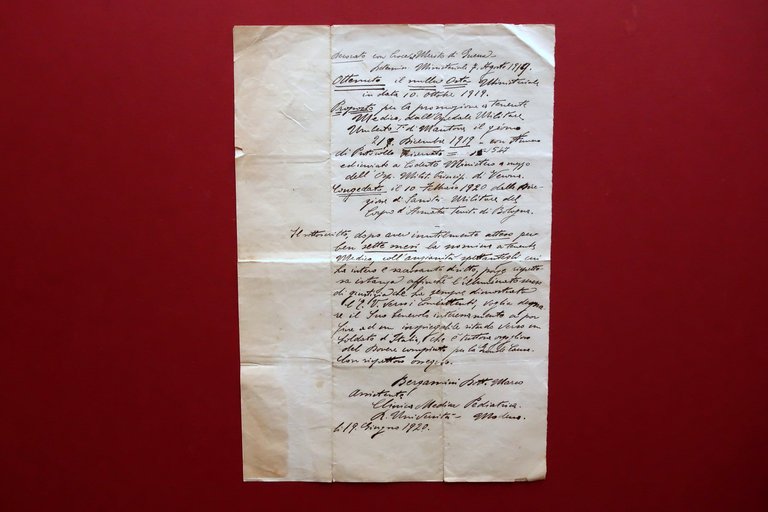 Decorato con Croce Merito di Guerra
Determin. Ministeriale 7. Agosto 1919.
Ottenuto il nulla Osta Ministeriale
in data 10. Ottobre 1919.
Proposto per la promozione a tenente
Medico, dall'Ospedale Militare
Umberto I° di Mantova il giorno
21 Dicembre 1919 - con Numero
di Protocollo Riservato =
ed inviato a Codesto Ministero a mezzo
dell'Osp. Milit. Princip. di Verona.
Congedato il 10 Febbraio 1920 dalla Dire-
zione di Sanità Militare del
Corpo d'Armata Territ. di Bologna.
Il sottoscritto, dopo aver inutilmente atteso per
ben sette mesi la nomina a tenente
Medico, coll'anzianità spettantegli cui
ha intero e sacrosanto diritto, porge rispetto-
sa istanza affinchè l'illuminato senso
di giustizia che ha sempre dimostrato
l'E. V. verso i Combattenti, voglia degna-
re il Suo benevolo interessamento a por
fine ad un inspiegabile ritardo verso un
Soldato d'Italia, che è tuttora orgoglioso
del Dovere compiuto per la Causa.
Con rispettoso ossequio.
Bergamini Dott. Marco
Assistente
Clinica Medica Pediatrica.
R. Università - Modena.
li 19 Giugno 1920.